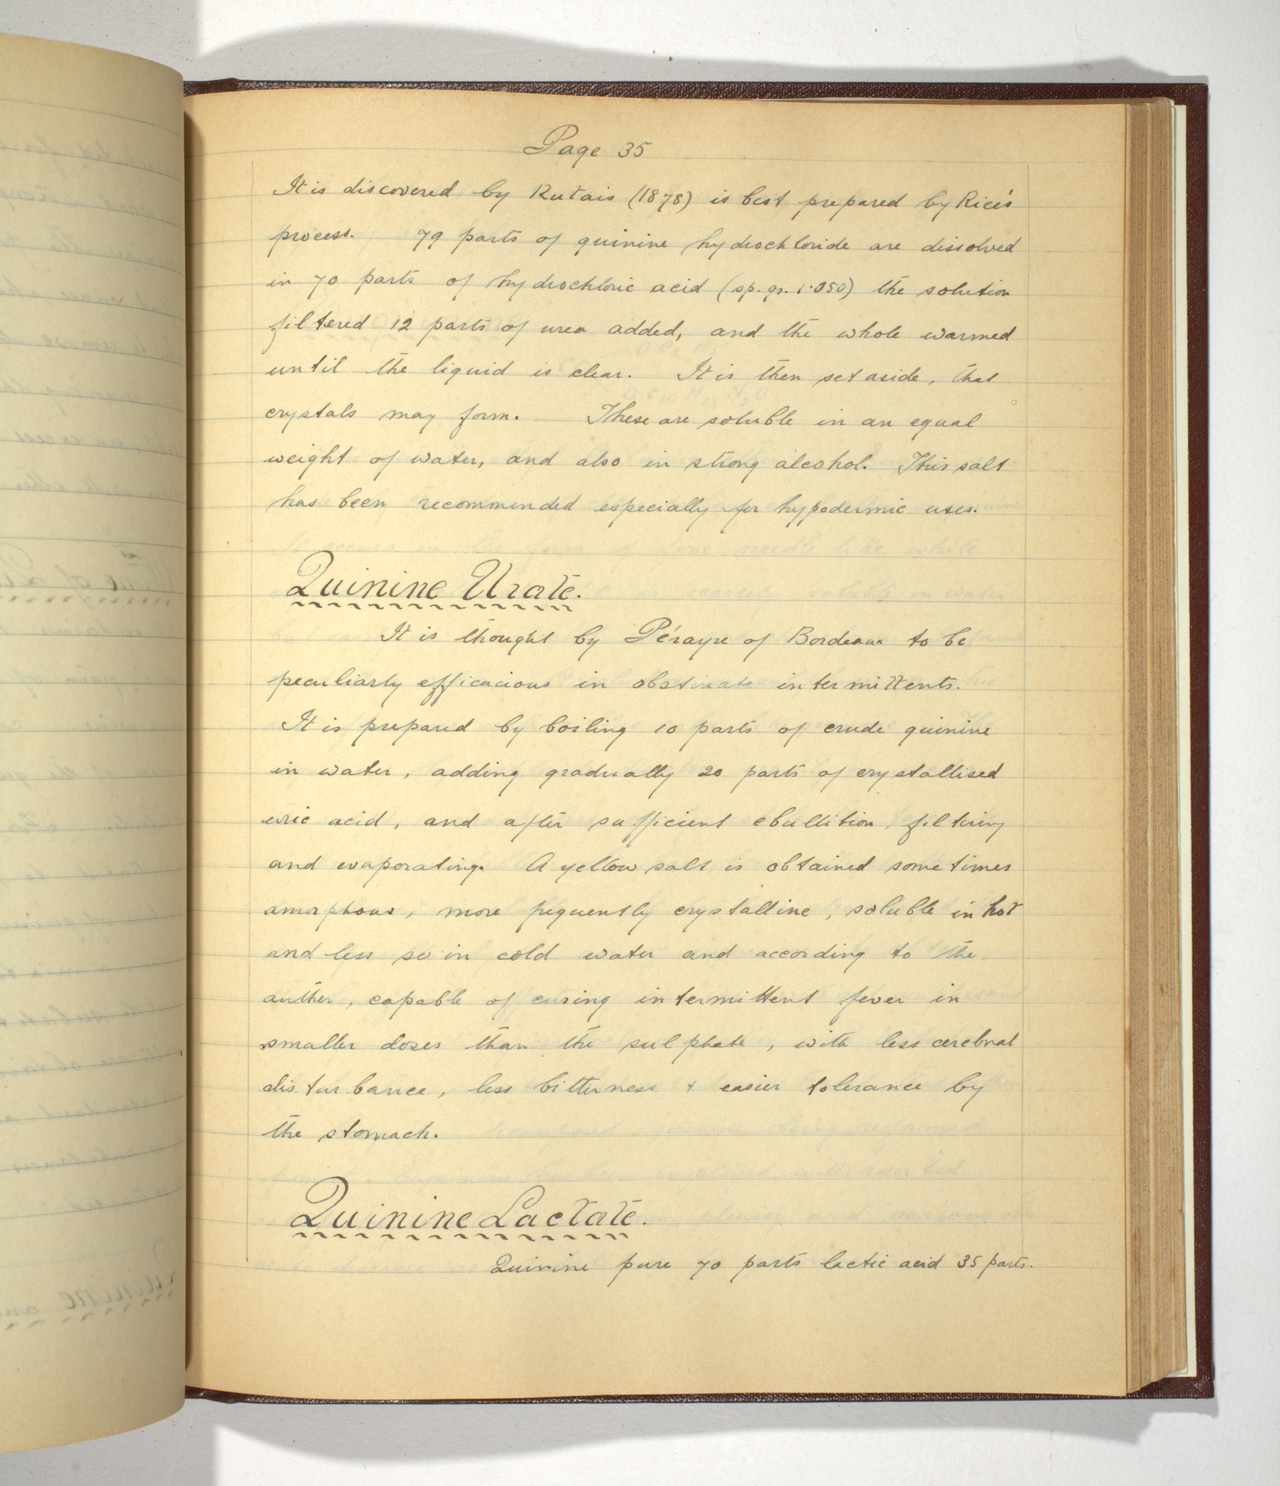 Page 35
It is discovered by Kutais (1878) is best prepared by Rice's
process. 79 parts of quinine hydrochloride are dissolved
in 70 parts of hydrochloric acid (sp. gr. 1.050) the solution
filtered 12 parts of urea added, and the whole warmed
until the liquid is clear. It is then set aside, that
crystals may form. These are soluble in an equal
weight of water, and also in strong alcohol. This salt
has been recommended especially for hypodermic uses.
Quinine Urate.
It is thought by Pérayre of Bordeaux to be
peculiarly efficacious in obstinate intermittents.
It is prepared by boiling 10 parts of crude quinine
in water, adding gradually 20 parts of crystallised
uric acid, and after sufficient ebullition, filtering
and evaporating. A yellow salt is obtained sometimes
amorphous, more frequently crystalline, soluble in hot
and less so in cold water and according to the
author, capable of curing intermittent fever in
smaller doses than the sulphate, with less cerebral
disturbance, less bitterness + easier tolerance by
the stomach.
Quinine Lactate.
Quinine pure 70 parts lactic acid 35 parts.